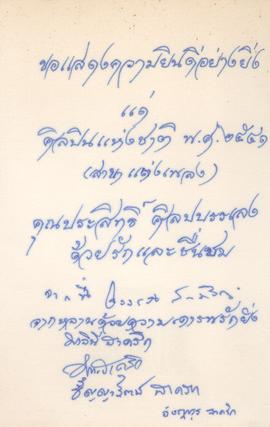 ขอแสดงความยินดีอย่างยิ่ง
แด่
ศิลปินแห่งชาติ พ.ศ. ๒๕๔๑
(สาขาแต่งเพลง)
คุณประสิทธิ์ ศิลปบรรเลง
ด้วยรักและชื่นชม
จาก
จากหลานด้วยความเคารพรักยิ่ง
มาลินี สาคริก
สาคริก